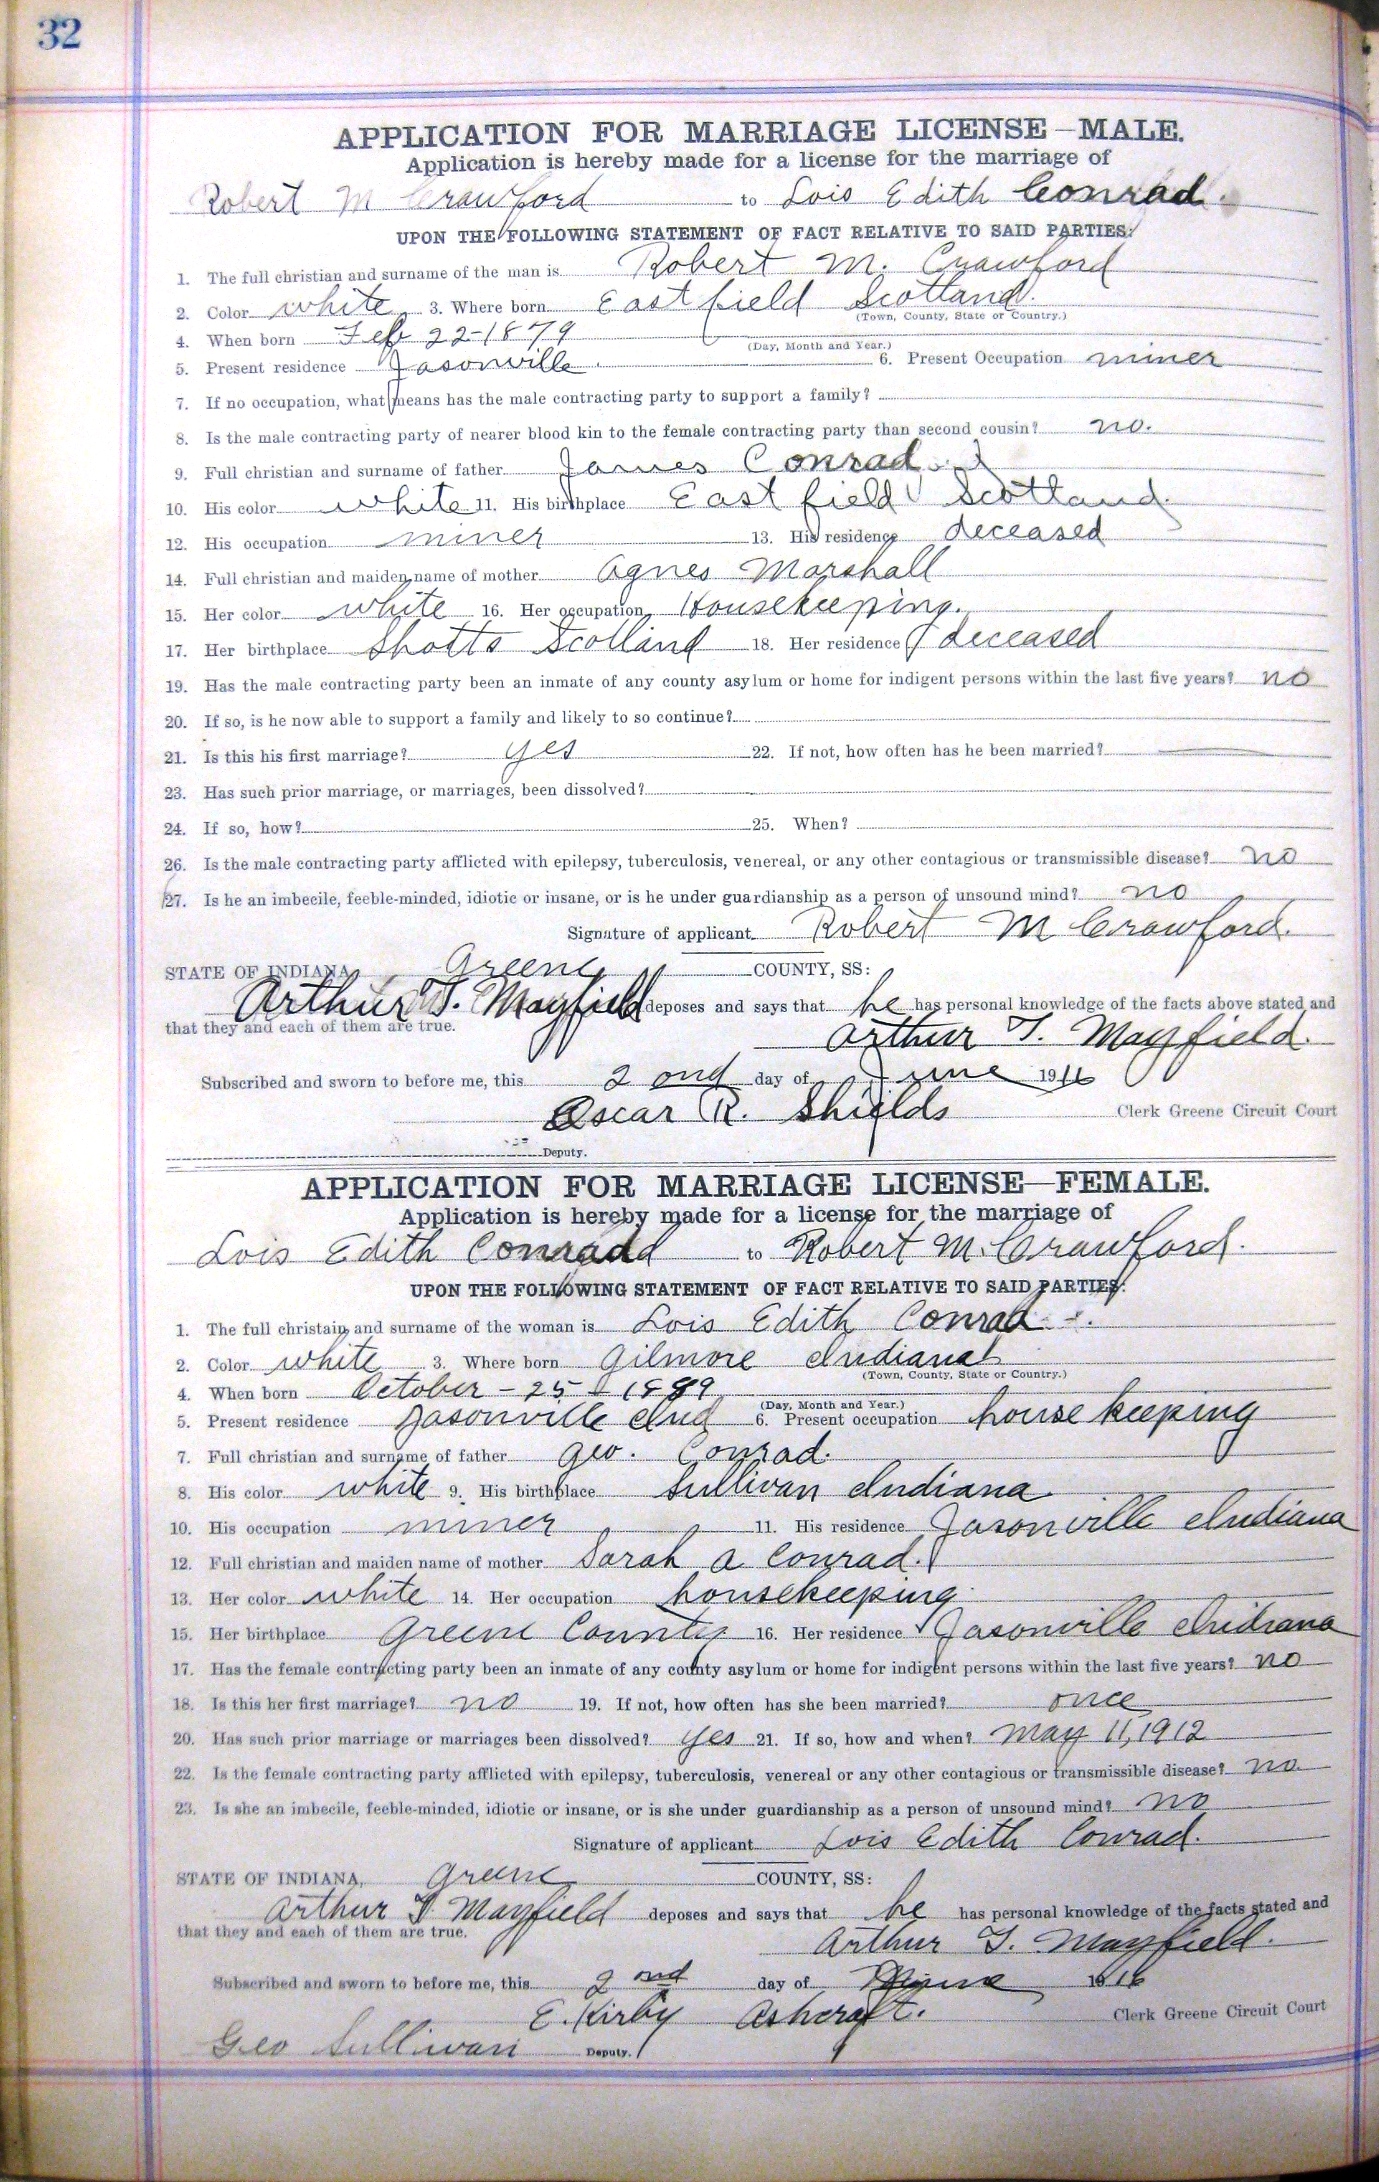 32
APPLICATION FOR MARRIAGE LICENSE—MALE.
Application is hereby made for a license for the marriage of
Robert M Crawford to Lois Edith Conrad.
UPON THE FOLLOWING STATEMENT OF FACT RELATIVE TO SAID PARTIES:
1. The full christian and surname of the man is Robert M. Crawford
2. Color white 3. Where born Eastfield Scotland.
(Town, County, State or Country.)
4. When born Feb 22-1879
(Day, Month and Year.)
5. Present residence Jasonville. 6. Present Occupation miner
7. If no occupation, what means has the male contracting party to support a family?
8. Is the male contracting party of nearer blood kin to the female contracting party than second cousin? no.
9. Full christian and surname of father James Conrad
10. His color white 11. His birthplace East field Scotland.
12. His occupation miner 13. His residence deceased
14. Full christian and maiden name of mother Agnes Marshall
15. Her color white 16. Her occupation Housekeeping.
17. Her birthplace Shotts Scotland 18. Her residence deceased
19. Has the male contracting party been an inmate of any county asylum or home for indigent persons within the last five years? no
20. If so, is he now able to support a family and likely to so continue?
21. Is this his first marriage? yes 22. If not, how often has he been married?
23. Has such prior marriage, or marriages, been dissolved?
24. If so, how? 25. When?
26. Is the male contracting party afflicted with epilepsy, tuberculosis, venereal, or any other contagious or transmissible disease? no
27. Is he an imbecile, feeble-minded, idiotic or insane, or is he under guardianship as a person of unsound mind? no
Signature of applicant Robert M Crawford.
STATE OF INDIANA Greene COUNTY, SS:
Arthur T. Mayfield deposes and says that he has personal knowledge of the facts above stated and
that they and each of them are true.
Arthur T. Mayfield.
Subscribed and sworn to before me, this 2 ond day of June 1916
Oscar R. Shields Clerk Greene Circuit Court
Deputy.
APPLICATION FOR MARRIAGE LICENSE—FEMALE.
Application is hereby made for a license for the marriage of
Lois Edith Conrad to Robert M. Crawford.
UPON THE FOLLOWING STATEMENT OF FACT RELATIVE TO SAID PARTIES:
1. The full christain and surname of the woman is Lois Edith Conrad
2. Color white 3. Where born Gilmore Indiana
(Town, County, State or Country.)
4. When born October - 25 - 1889
(Day, Month and Year.)
5. Present residence Jasonville Ind 6. Present occupation house keeping
7. Full christian and surname of father Geo. Conrad.
8. His color white 9. His birthplace Sullivan Indiana.
10. His occupation miner 11. His residence Jasonville Indiana
12. Full christian and maiden name of mother Sarah A Conrad.
13. Her color white 14. Her occupation housekeeping
15. Her birthplace Greene County 16. Her residence Jasonville Indiana
17. Has the female contracting party been an inmate of any county asylum or home for indigent persons within the last five years? no
18. Is this her first marriage? no 19. If not, how often has she been married? once
20. Has such prior marriage or marriages been dissolved? yes 21. If so, how and when? May 11, 1912
22. Is the female contracting party afflicted with epilepsy, tuberculosis, venereal or any other contagious or transmissible disease? no
23. Is she an imbecile, feeble-minded, idiotic or insane, or is she under guardianship as a person of unsound mind? no
Signature of applicant Lois Edith Conrad.
STATE OF INDIANA, Greene COUNTY, SS:
Arthur T Mayfield deposes and says that he has personal knowledge of the facts stated and
that they and each of them are true.
Arthur T. Mayfield.
Subscribed and sworn to before me, this 2 ond day of June 1916
E. Kirby Ashcraft. Clerk Greene Circuit Court
Geo Sullivan Deputy.